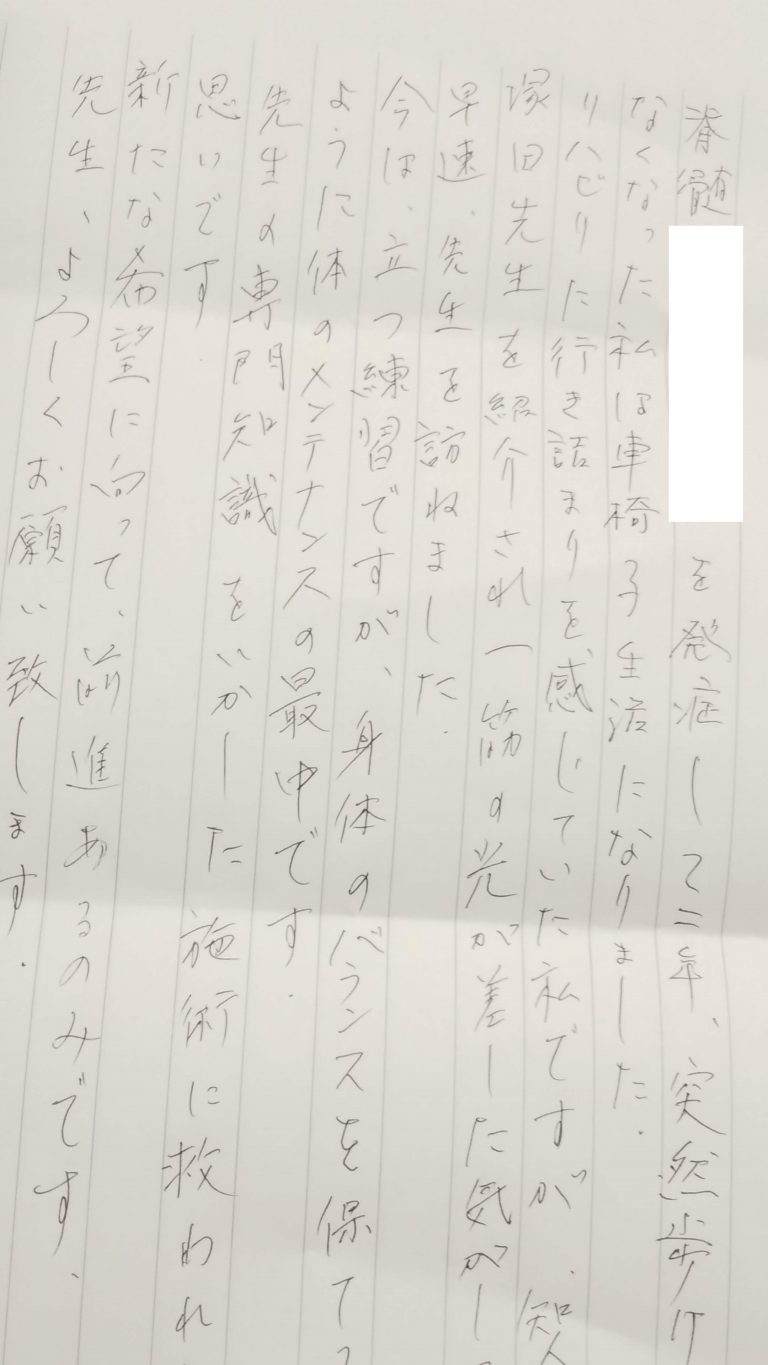 脊髄 を発症して二年、突然歩け
なくなった私は車椅子生活になりました.
リハビリに行き詰まりを感じていた私ですが、知人
塚田先生を紹介され一筋の光が差した気がし
早速、先生を訪ねました.
今は、立つ練習ですが、身体のバランスを保て
ように体のメンテナンスの最中です.
先生の専門知識をいかした施術に救われ
思いです.
新たな希望に向って、前進あるのみです、
先生、よろしくお願い致します.